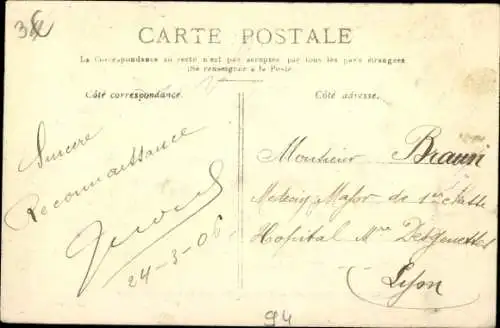 CARTE POSTALE
La Correspondance au recto n'est pas acceptée par tous les pays étrangers
(Se renseigner à la Poste
Côté correspondance.
Côté adresse.
Sincère
Reconnaissance
24-3-06
Monsieur Braun
Medecin Major de 1ère classe
Hopital Mre Desgenettes
Lyon
94